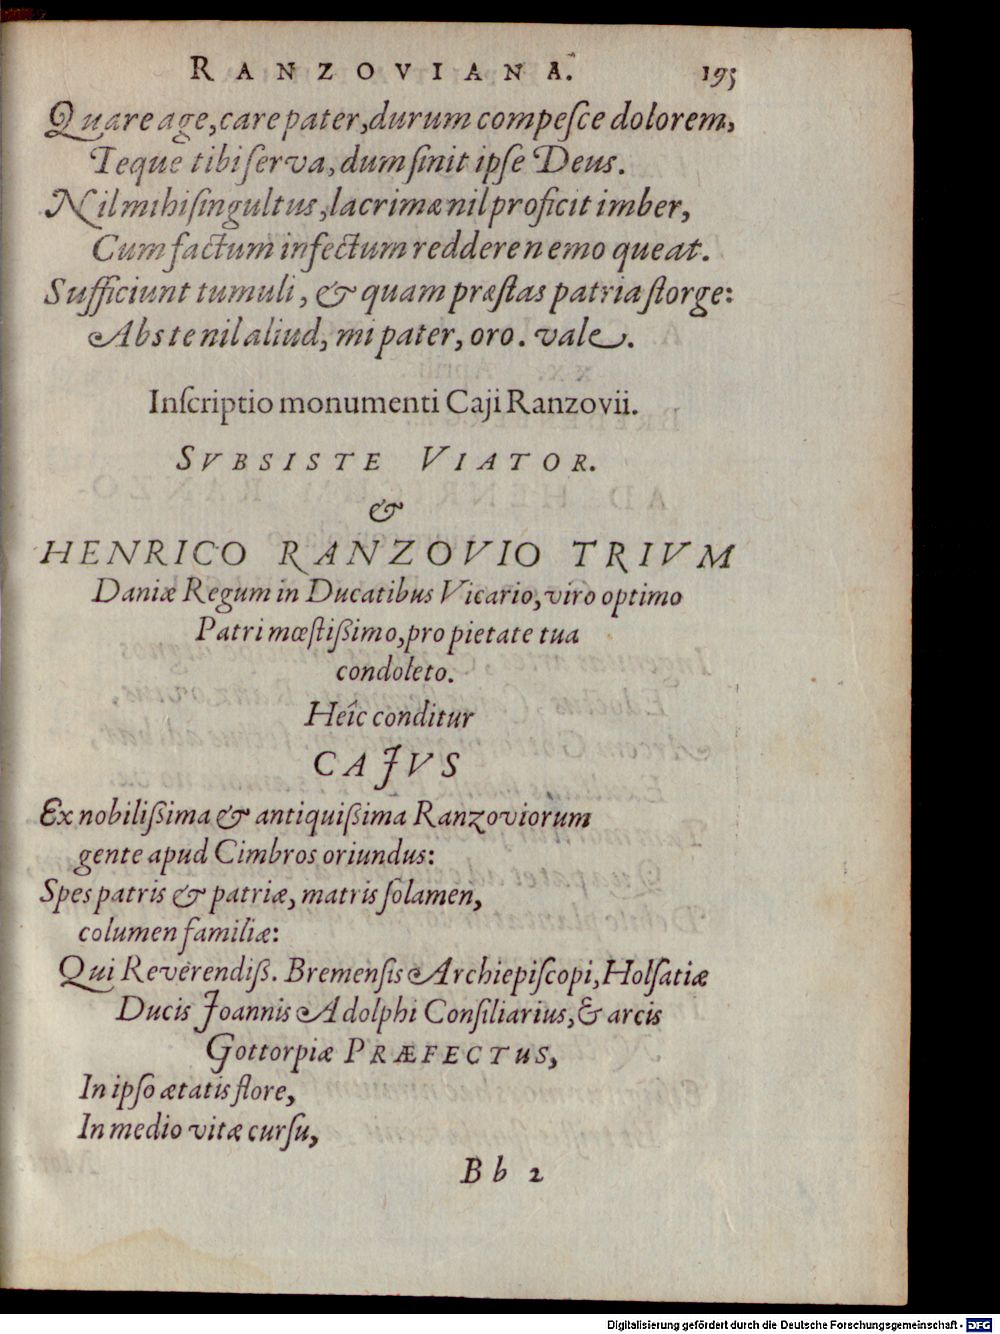 RANZOVIANA. 195
Quare age, care pater, durum compeſce dolorem,
Teque tibi ſerva, dum ſinit ipſe Deus.
Nil mihi ſingultus, lacrimæ nil proficit imber,
Cum factum infectum reddere nemo queat.
Sufficiunt tumuli, & quam præſtas patria ſtorge:
Abs te nil aliud, mi pater, oro. vale.
Inſcriptio monumenti Caji Ranzovii.
SVBSISTE VIATOR.
&
HENRICO RANZOVIO TRIVM
Daniæ Regum in Ducatibus Vicario, viro optimo
Patri mœſtißimo, pro pietate tua
condoleto.
Heîc conditur
CAJVS
Ex nobilißima & antiquißima Ranzoviorum
gente apud Cimbros oriundus:
Spes patris & patriæ, matris ſolamen,
columen familiæ:
Qui Reverendiß. Bremenſis Archiepiſcopi, Holſatiæ
Ducis Joannis Adolphi Conſiliarius, & arcis
Gottorpiæ PRÆFECTUS,
In ipſo ætatis flore,
In medio vitæ curſu,
Bb 2
Digitalisierung gefördert durch die Deutsche Forschungsgemeinschaft - DFG